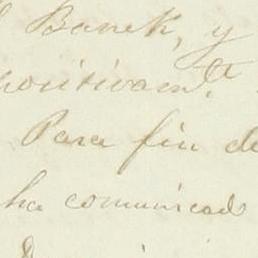 Banck, y
positivam.te
Para fin de
ha comunicado